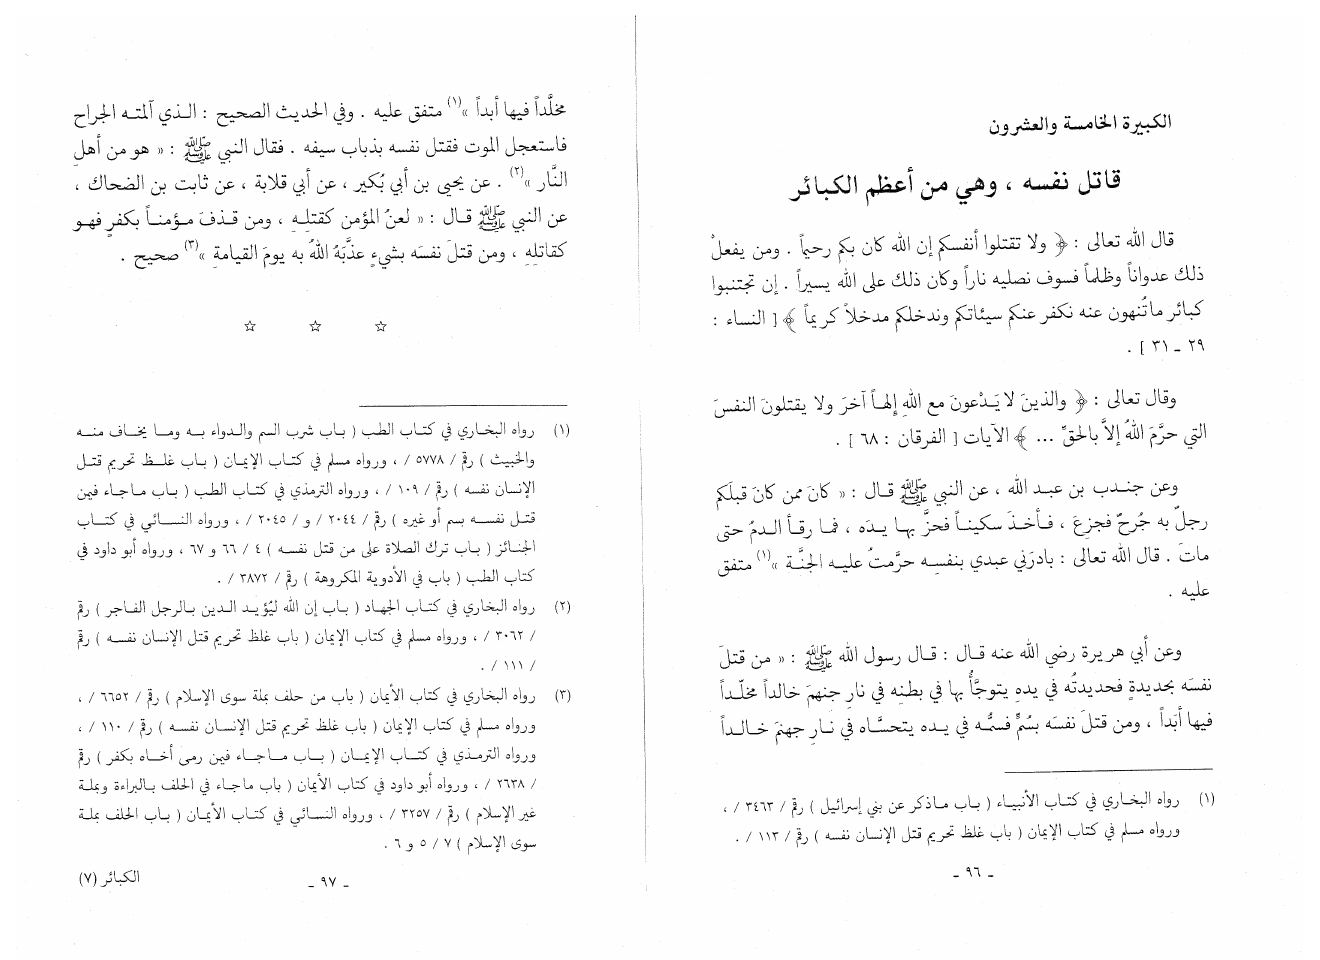 الكبيرة الخامسة والعشرون
قاتل نفسه ، وهي من أعظم الكبائر
قال الله تعالى : ﴿ ولا تقتلوا أنفسكم إن الله كان بكم رحيماً . ومن يفعلْ
ذلك عدواناً وظلماً فسوف نصليه ناراً وكان ذلك على الله يسيراً . إن تجتنبوا
كبائر ماتُنهون عنه نكفر عنكم سيئاتكم وندخلكم مدخلاً كريماً ﴾ [ النساء :
٢٩ ـ ٣١ ] .
وقال تعالى : ﴿ والذينَ لا يَدْعونَ مع اللهِ إلهاً آخرَ ولا يقتلونَ النفسَ
التي حرَّمَ اللهُ إلاَّ بالحقِّ ... ﴾ الآيات [ الفرقان : ٦٨ ] .
وعن جندب بن عبد الله ، عن النبي ﷺ قال : « كانَ ممن كانَ قبلَكم
رجلٌ به جُرحٌ فجزِعَ ، فأخذَ سكيناً فحزَّ بها يدَه ، فما رقأ الدمُ حتى
ماتَ . قال الله تعالى : بادرَني عبدي بنفسِه حرَّمتُ عليه الجنَّة »(١) متفق
عليه .
وعن أبي هريرة رضي الله عنه قال : قال رسول الله ﷺ : « من قتلَ
نفسَه بحديدةٍ فحديدتُه في يدِه يتوجَّأُ بها في بطنِه في نارِ جنهمَ خالداً مخلَّداً
فيها أبَداً ، ومن قتلَ نفسَه بسُمٍّ فسمُّه في يده يتحسَّاه في نارِ جهنمَ خالداً
(١) رواه البخاري في كتاب الأنبياء ( باب ماذكر عن بني إسرائيل ) رقم / ٣٤٦٣ / ،
ورواه مسلم في كتاب الإيمان ( باب غلظ تحريم قتل الإنسان نفسه ) رقم / ١١٣ / .
ـ ٩٦ ـ
مخلَّداً فيها أبداً »(١) متفق عليه . وفي الحديث الصحيح : الذي آلمته الجراح
فاستعجل الموت فقتل نفسه بذباب سيفه . فقال النبي ﷺ : « هو من أهلِ
النَّار »(٢) . عن يحيى بن أبي بُكير ، عن أبي قلابة ، عن ثابت بن الضحاك ،
عن النبي ﷺ قال : « لعنُ المؤمن كقتلِهِ ، ومن قذفَ مؤمناً بكفرٍ فهو
كقاتلِهِ ، ومن قتلَ نفسَه بشيءٍ عذَّبَهُ اللهُ به يومَ القيامةِ »(٣) صحيح .
☆ ☆ ☆
(١) رواه البخاري في كتاب الطب ( باب شرب السم والدواء به وما يخاف منه
والخبيث ) رقم / ٥٧٧٨ / ، ورواه مسلم في كتاب الإيمان ( باب غلظ تحريم قتل
الإنسان نفسه ) رقم / ١٠٩ / ، ورواه الترمذي في كتاب الطب ( باب ماجاء فيمن
قتل نفسه بسم أو غيره ) رقم / ٢٠٤٤ / و / ٢٠٤٥ / ، ورواه النسائي في كتاب
الجنائز ( باب ترك الصلاة على من قتل نفسه ) ٤ / ٦٦ و ٦٧ ، ورواه أبو داود في
كتاب الطب ( باب في الأدوية المكروهة ) رقم / ٣٨٧٢ / .
(٢) رواه البخاري في كتاب الجهاد ( باب إن الله ليُؤيد الدين بالرجل الفاجر ) رقم
/ ٣٠٦٢ / ، ورواه مسلم في كتاب الإيمان ( باب غلظ تحريم قتل الإنسان نفسه ) رقم
/ ١١١ / .
(٣) رواه البخاري في كتاب الأيمان ( باب من حلف بملة سوى الإسلام ) رقم / ٦٦٥٢ / ،
ورواه مسلم في كتاب الإيمان ( باب غلظ تحريم قتل الإنسان نفسه ) رقم / ١١٠ / ،
ورواه الترمذي في كتاب الإيمان ( باب ماجاء فيمن رمى أخاه بكفر ) رقم
/ ٢٦٣٨ / ، ورواه أبو داود في كتاب الأيمان ( باب ماجاء في الحلف بالبراءة وبملة
غير الإسلام ) رقم / ٣٢٥٧ / ، ورواه النسائي في كتاب الأيمان ( باب الحلف بملة
سوى الإسلام ) ٧ / ٥ و ٦ .
ـ ٩٧ ـ
الكبائر (٧)